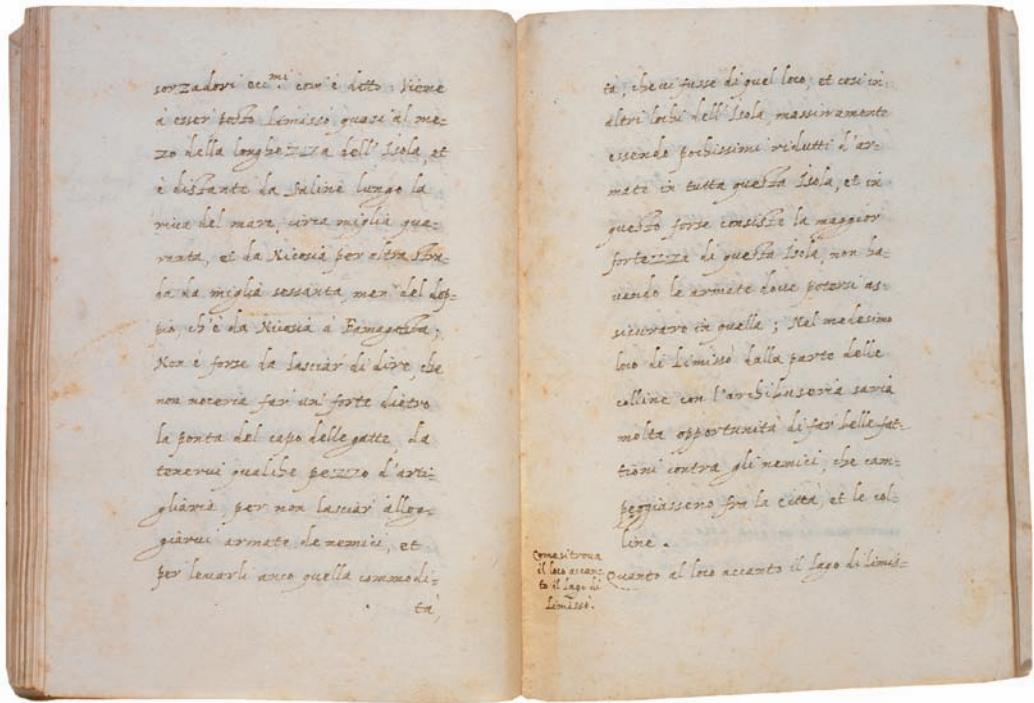 sorzadori ecc.mi com'è ditto: Viene
à esser posto Limissò quasi al me=
zo della longhezza dell'Isola, et
è distante da Saline lungo la
riva del mare, circa miglia qua=
ranta, et da Nicosia per altra stra=
da da miglia sessanta, men' del dop=
pio, ch'è da Nicosia à Famagosta;
Non è forse da lasciar di dire, che
non noceria far un' forte dietro
la ponta del capo delle gatte, da
tenervi qualche pezzo d'arti=
gliaria, per non lasciar allog=
giarvi armate de nemici, et
per levarli anco quella commodi=
tà,
tà, che vi fusse di quel loco, et così in
altri lochi dell'Isola, massimamente
essendo pochissimi ridutti d'ar=
mate in tutta questa Isola, et in
questo forse consiste la maggior
fortezza di questa Isola, non ha=
vendo le armate dove potersi as=
sicurare in quella; Nel medesimo
loco di Limissò dalla parte delle
colline con l'archibuseria saria
molta opportunità di far belle fat=
tioni contra gli nemici, che cam=
peggiasseno fra la città, et le col=
line.
Come si trova
il loco accan=
to il lago di
Limissò.
Quanto al loco accanto il lago di Limis=